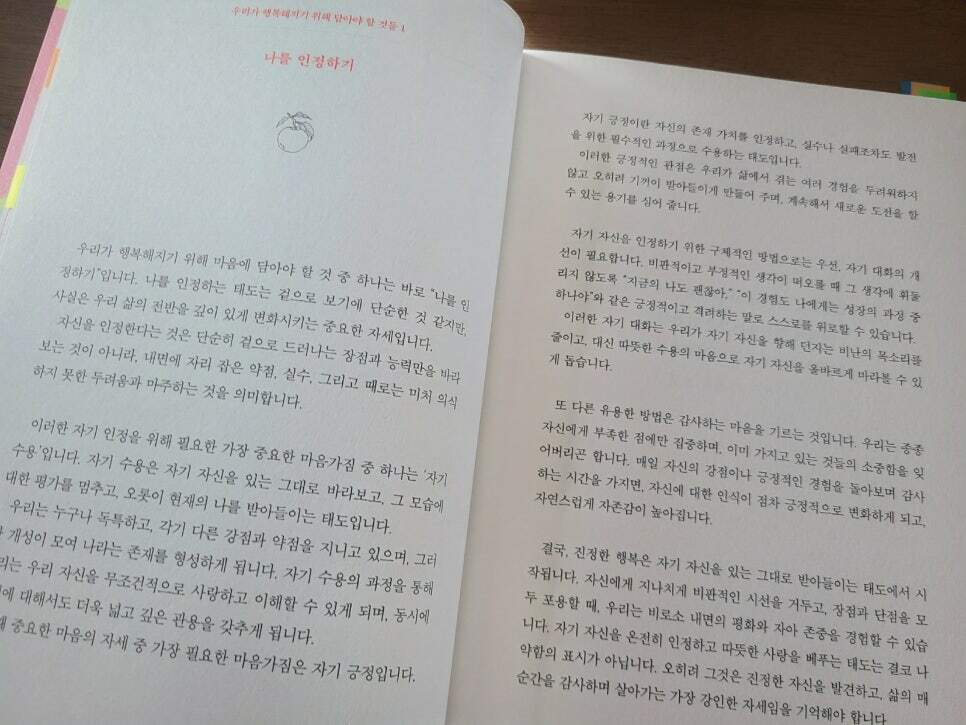 우리가 행복해지기 위해 담아야 할 것들 1
나를 인정하기
우리가 행복해지기 위해 마음에 담아야 할 것 중 하나는 바로 “나를 인
정하기”입니다. 나를 인정하는 태도는 겉으로 보기에 단순한 것 같지만,
사실은 우리 삶의 전반을 깊이 있게 변화시키는 중요한 자세입니다.
자신을 인정한다는 것은 단순히 겉으로 드러나는 장점과 능력만을 바라
보는 것이 아니라, 내면에 자리 잡은 약점, 실수, 그리고 때로는 미처 의식
하지 못한 두려움과 마주하는 것을 의미합니다.
이러한 자기 인정을 위해 필요한 가장 중요한 마음가짐 중 하나는 ‘자기
수용’입니다. 자기 수용은 자기 자신을 있는 그대로 바라보고, 그 모습에
대한 평가를 멈추고, 오롯이 현재의 나를 받아들이는 태도입니다.
우리는 누구나 독특하고, 각기 다른 강점과 약점을 지니고 있으며, 그러
개성이 모여 나라는 존재를 형성하게 됩니다. 자기 수용의 과정을 통해
우리 자신을 무조건적으로 사랑하고 이해할 수 있게 되며, 동시에
대해서도 더욱 넓고 깊은 관용을 갖추게 됩니다.
중요한 마음의 자세 중 가장 필요한 마음가짐은 자기 긍정입니다.
자기 긍정이란 자신의 존재 가치를 인정하고, 실수나 실패조차도 발전
을 위한 필수적인 과정으로 수용하는 태도입니다.
이러한 긍정적인 관점은 우리가 삶에서 겪는 여러 경험을 두려워하지
않고 오히려 기꺼이 받아들이게 만들어 주며, 계속해서 새로운 도전을 할
수 있는 용기를 심어 줍니다.
자기 자신을 인정하기 위한 구체적인 방법으로는 우선, 자기 대화의 개
선이 필요합니다. 비판적이고 부정적인 생각이 떠오를 때 그 생각에 휘둘
리지 않도록 “지금의 나도 괜찮아,” “이 경험도 나에게는 성장의 과정 중
하나야”와 같은 긍정적이고 격려하는 말로 스스로를 위로할 수 있습니다.
이러한 자기 대화는 우리가 자기 자신을 향해 던지는 비난의 목소리를
줄이고, 대신 따뜻한 수용의 마음으로 자기 자신을 올바르게 바라볼 수 있
게 돕습니다.
또 다른 유용한 방법은 감사하는 마음을 기르는 것입니다. 우리는 종종
자신에게 부족한 점에만 집중하며, 이미 가지고 있는 것들의 소중함을 잊
어버리곤 합니다. 매일 자신의 강점이나 긍정적인 경험을 돌아보며 감사
하는 시간을 가지면, 자신에 대한 인식이 점차 긍정적으로 변화하게 되고,
자연스럽게 자존감이 높아집니다.
결국, 진정한 행복은 자기 자신을 있는 그대로 받아들이는 태도에서 시
작됩니다. 자신에게 지나치게 비판적인 시선을 거두고, 장점과 단점을 모
두 포용할 때, 우리는 비로소 내면의 평화와 자아 존중을 경험할 수 있습
니다. 자기 자신을 온전히 인정하고 따뜻한 사랑을 베푸는 태도는 결코 나
약함의 표시가 아닙니다. 오히려 그것은 진정한 자신을 발견하고, 삶의 매
순간을 감사하며 살아가는 가장 강인한 자세임을 기억해야 합니다.